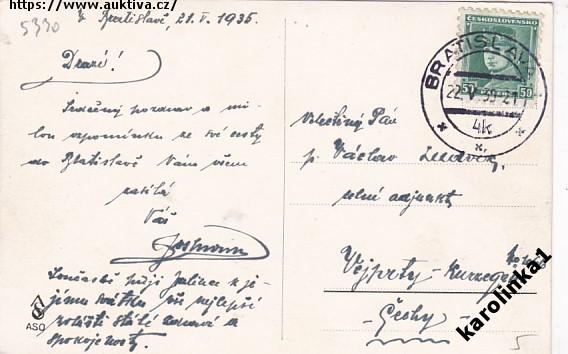 https://www.auktiva.cz/
5330
V Bratislavě, 21.V.1935.
Drazí!
Srdečný pozdrav a mi-
lou vzpomínku ze své cesty
do Bratislavě Vám všem
zasílá
Váš
Současně přeji k je-
jímu svátku vše nejlepší
stálé zdraví a
spokojenosty.
ASO
ČESKOSLOVENSKO
50 50
BRATISLAVA
22.V.35-21
4k
Velectěný Pán
p. Václav
celní adjunkt
Vejprty-
Čechy
5
karolinka1